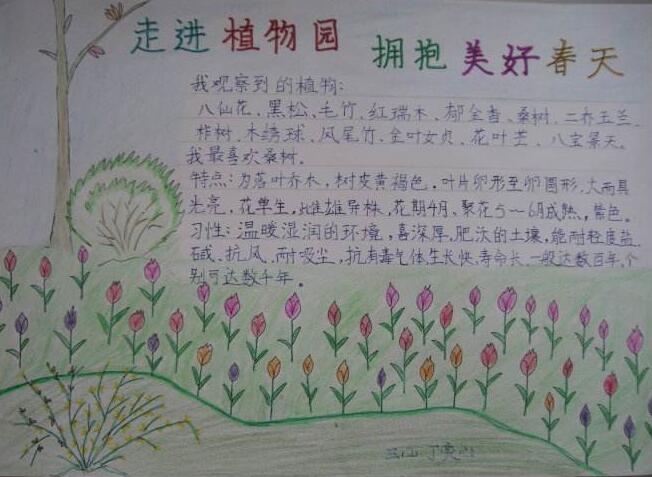 走进植物园 拥抱美好春天
我观察到的植物：
八仙花、黑松、毛竹、红瑞木、郁金香、桑树、二乔玉兰、
柞树、木绣球、凤尾竹、金叶女贞、花叶芒、八宝景天。
我最喜欢桑树。
特点：为落叶乔木，树皮黄褐色，叶片卵形至卵圆形，大而具
光亮，花单生，雌雄异株，花期4月、聚花5～6月成熟，紫色。
习性：温暖湿润的环境，喜深厚，肥沃的土壤，能耐轻度盐
碱、抗风、耐吸尘，抗有毒气体生长快，寿命长、一般达数百年，个
别可达数千年。